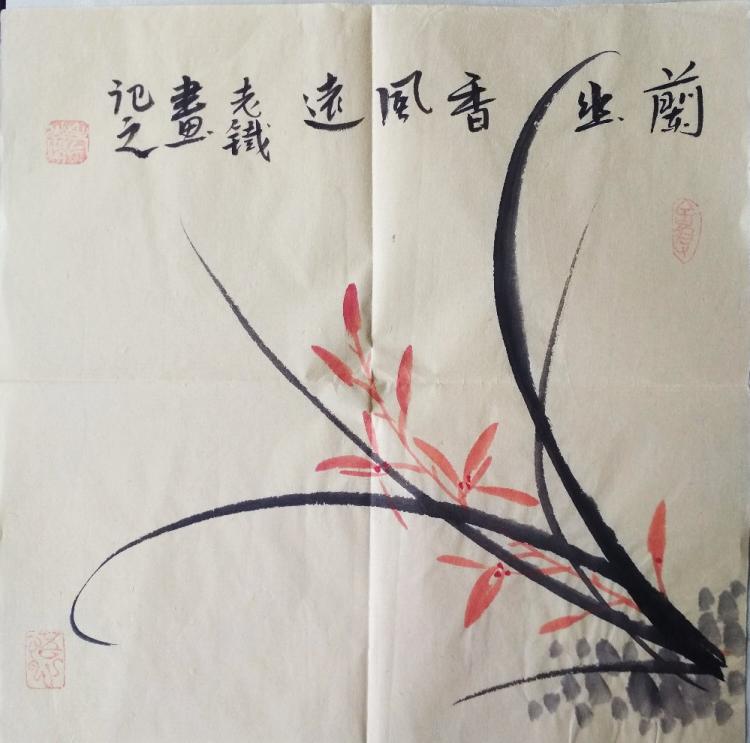 蘭幽香風遠
老鐵
畫
記之